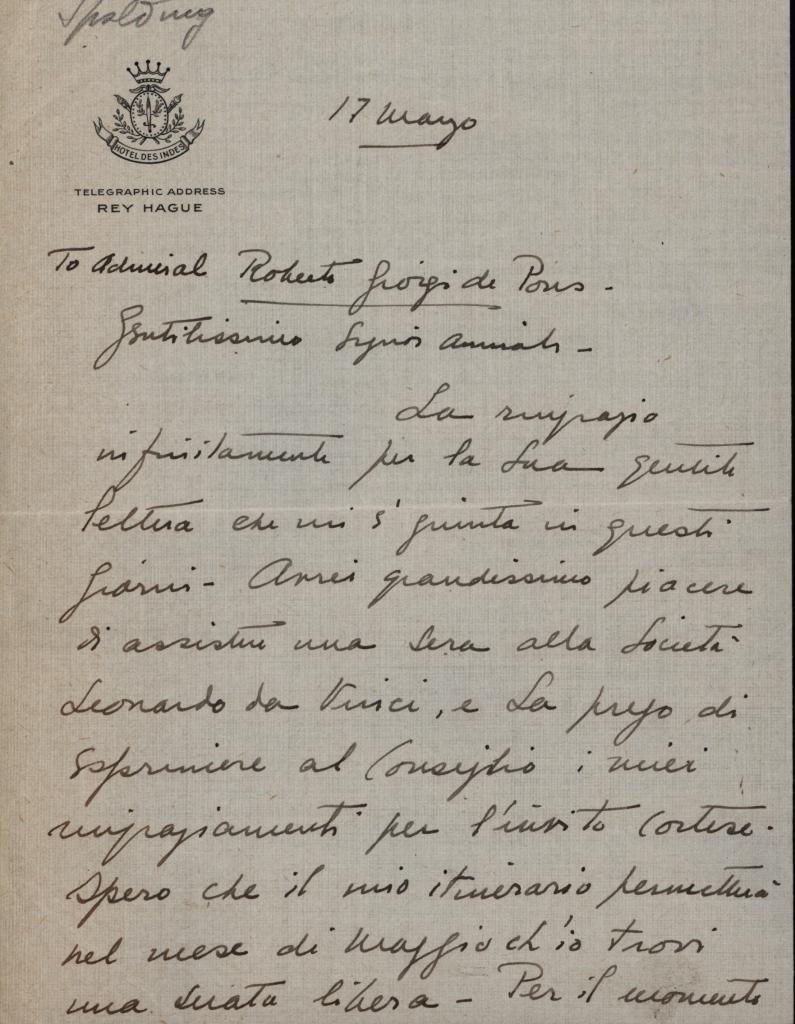 Spalding
17 Marzo
HOTEL DES INDES
TELEGRAPHIC ADDRESS
REY HAGUE
To Admiral Roberto Giorgi de Pons -
Gentilissimo Signor Ammiralo -
La ringrazio
infinitamente per la Sua gentile
lettera che mi è giunta in questi
giorni - Avrei grandissimo piacere
di assistere una sera alla Società
Leonardo da Vinci, e La prego di
esprimere al Consiglio i miei
ringraziamenti per l'invito cortese.
Spero che il mio itinerario permetterà
nel mese di Maggio ch'io trovi
una serata libera - Per il momento